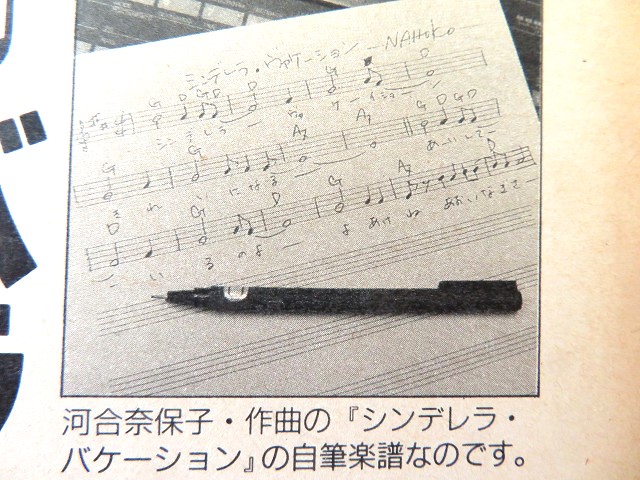 シンデレラ・ヴァケーション —NAHOKO—
G D G D G D
シンデレラー ヴァ ケーイショーン
G G A7 A7 G D G D
き れ い になる あーいしてー
D G D G A7 D
こ い る のよ よ あけ ね
河合奈保子・作曲の『シンデレラ・
バケーション』の自筆楽譜なのです。